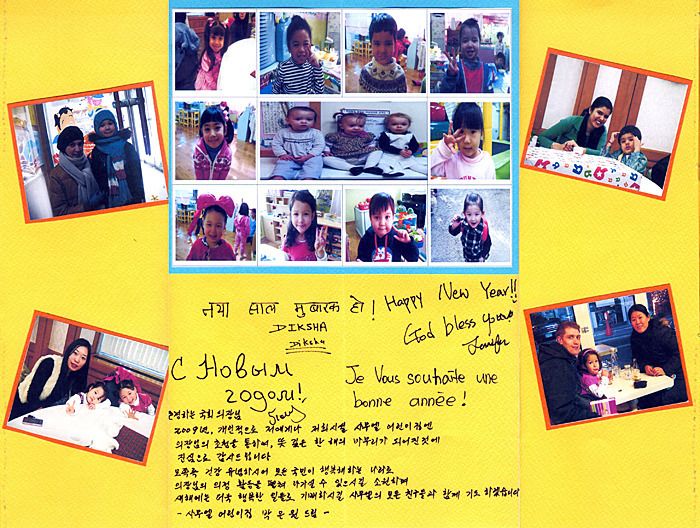 नया साल मुबारक हो!
Happy New Year!!
DIKSHA
Diksha
God bless you
Jenifer
С Новым
годом!
Je Vous souhaite une
bonne année!
존경하는 국회 의장님
2009년, 개인적으로 저에게나 저희시설 사무엘 어린이집엔
의장님의 초청을 통하여, 뜻 깊은 한 해의 마무리가 되어진것에
진심으로 감사드립니다
모쪼록 건강 유념하시어 모든 국민이 행복해하는 나라로
의장님의 의정 활동을 펼쳐 나가실 수 있으시길 소원하며
새해에는 더욱 행복한 일들로 가득하시길 사무엘의 모든 친구들과 함께 기도하겠습니다
- 사무엘 어린이집 박 은 원 드림 -